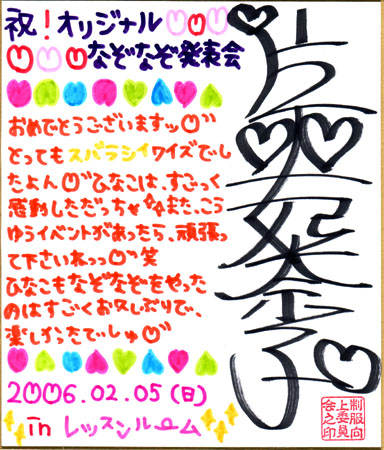 祝!オリジナル
なぞなぞ発表会
おめでとうございますッ
とってもスバラシイクイズでし
たよん♡ひなこは、すごっく
感動しただっちゃ また、こう
ゆうイベントがあったら、頑張っ
て下さいねっっ♡笑
ひなこもなぞなぞをやった
のはすごくお久しぶりで、
楽しかったでしゅ♡
2006.02.05(日)
in レッスンルーム
制服向
上委員
会之印